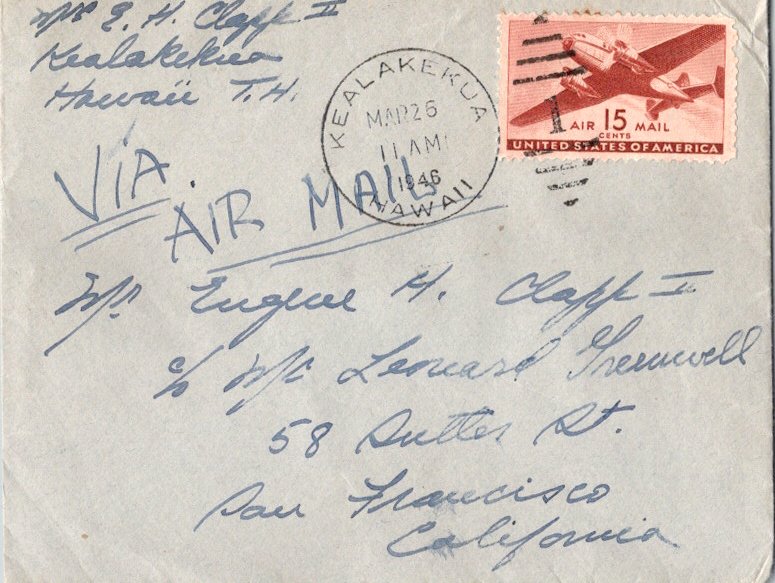 Mrs E. H. Clapp II
Kealakekua
Hawaii T.H.
KEALAKEKUA
MAR 26
11 AM
1946
HAWAII
1
AIR 15 MAIL
CENTS
UNITED STATES OF AMERICA
VIA
AIR MAIL
Mr. Eugene H. Clapp II
c/o Mr Leonard
58 Sutter St.
San Francisco
California